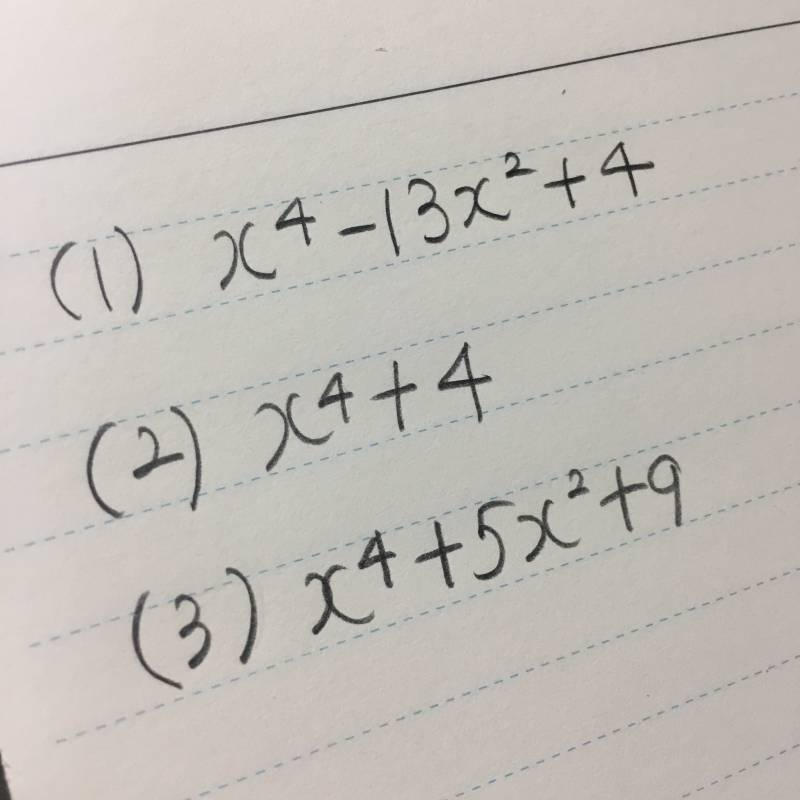 (1) x⁴-13x²+4
(2) x⁴+4
(3) x⁴+5x²+9